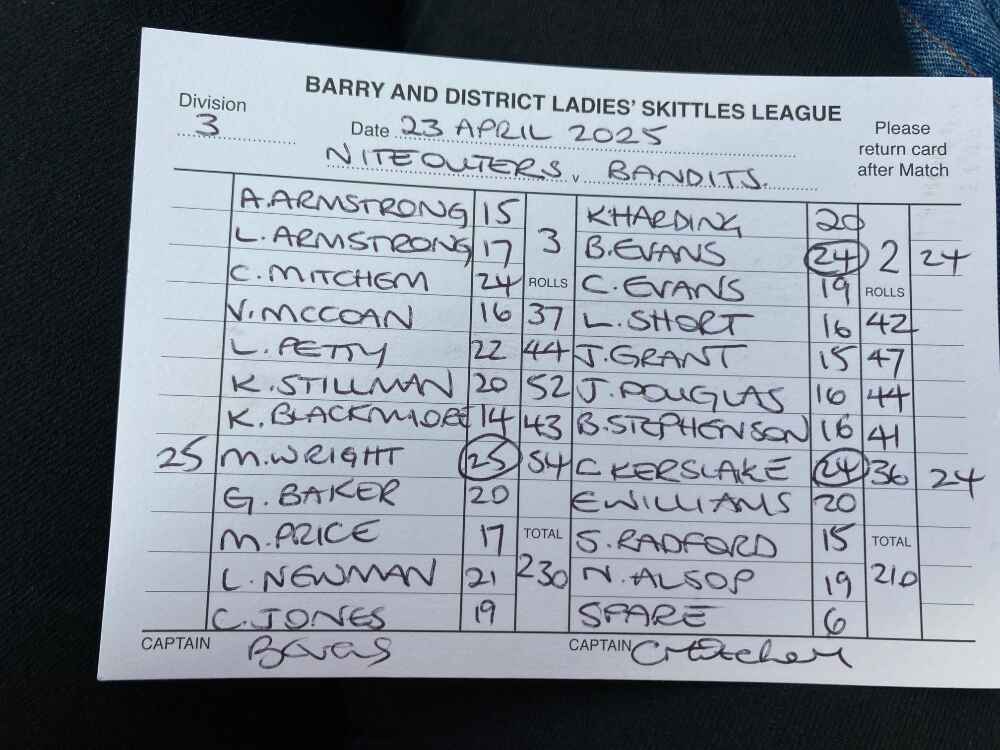 BARRY AND DISTRICT LADIES' SKITTLES LEAGUE
Division 3
Date 23 APRIL 2025
Please return card after Match
NITEOUTERS v BANDITS.
A. ARMSTRONG 15 3 K HARDING 20 2
L. ARMSTRONG 17 B. EVANS 24 24
C. MITCHEM 24 ROLLS C. EVANS 19 ROLLS
V. MCCOAN 16 37 L. SHORT 16 42
L. PETTY 22 44 J. GRANT 15 47
K. STILLMAN 20 52 J. DOUGLAS 16 44
K. BLACKMORE 14 43 B. STEPHENSON 16 41
25 M. WRIGHT 25 54 C KERSLAKE 24 36 24
G. BAKER 20 E WILLIAMS 20
M. PRICE 17 TOTAL S. RADFORD 15 TOTAL
L. NEWMAN 21 230 N. ALSOP 19 210
C. JONES 19 SPARE 6
CAPTAIN CAPTAIN